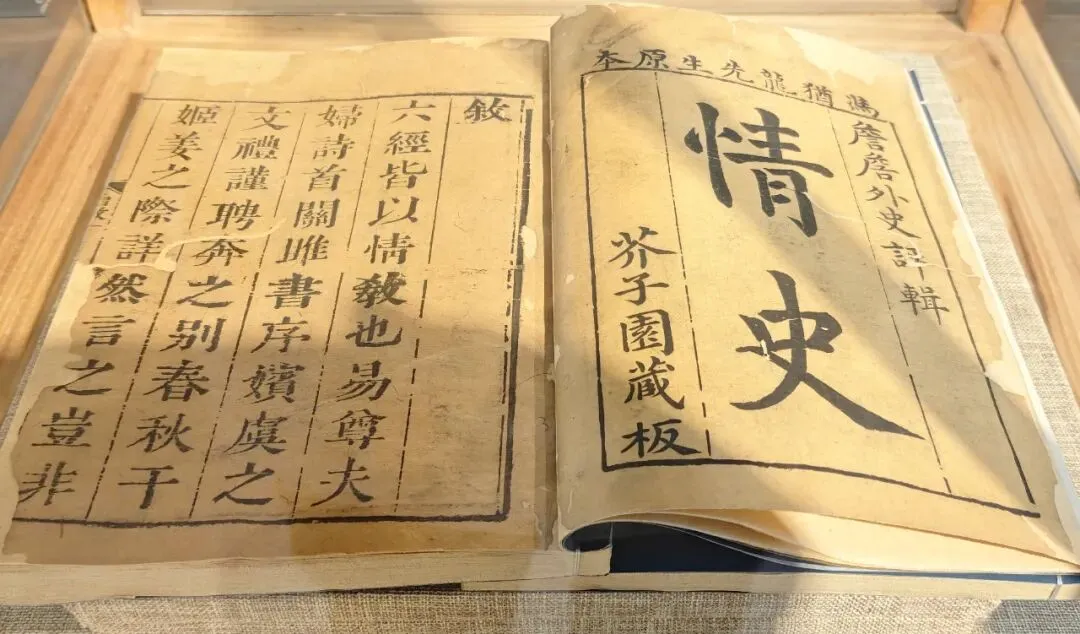 馮猶龍先生原本
詹詹外史評輯
情史
芥子園藏板
敘
六經皆以情教也易尊夫
婦詩首關雎書序嬪虞之
文禮謹聘奔之别春秋于
姬姜之際詳然言之豈非